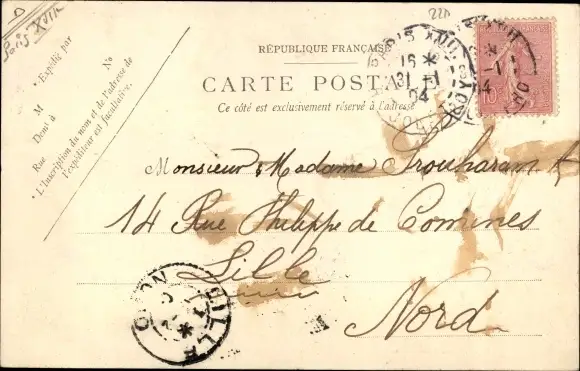 Paris XVII
220
* Expédié par
M
Demt à
Rue
No
* L'Inscription du nom et de l'adresse de
l'expéditeur est facultative.
RÉPUBLIQUE FRANÇAISE
CARTE POSTALE
Ce côté est exclusivement réservé à l'adresse
PARIS XVII
16 *
31 -1
04
10
Monsieur & Madame
14 Rue Philippe de Comines
Lille
Nord
LILLE
NORD